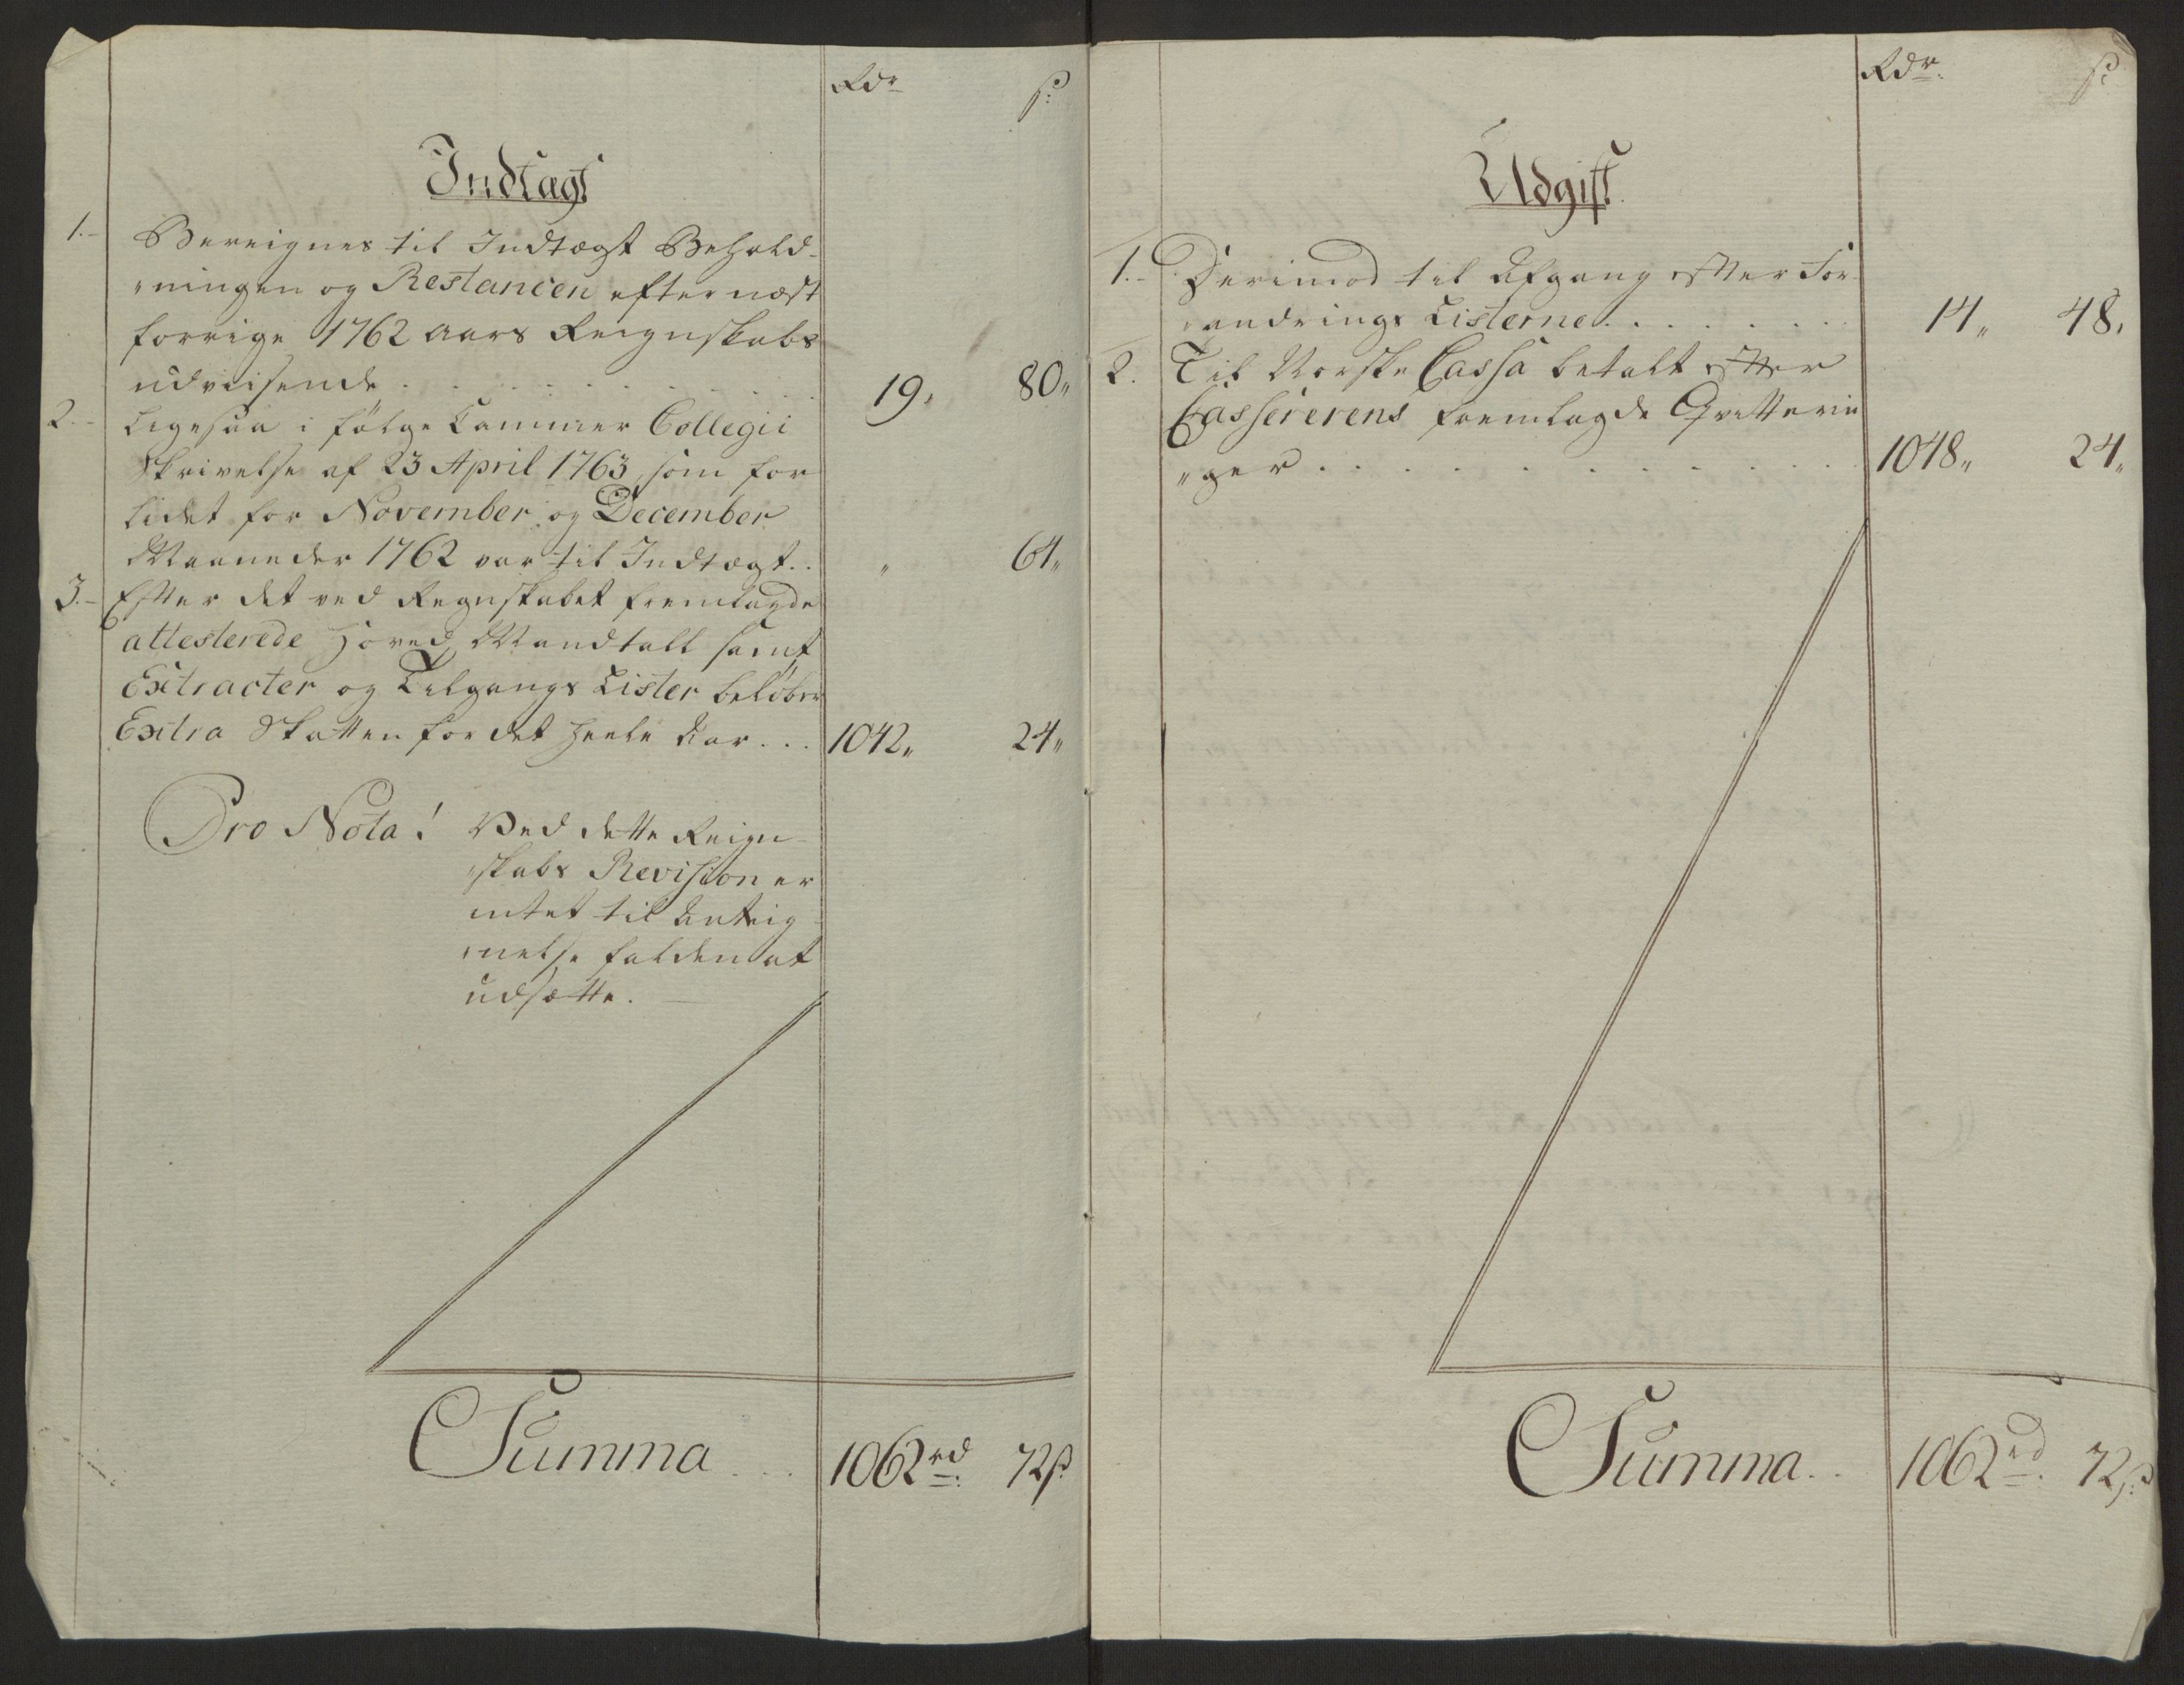 Rdr ß:
Indtægt
1.- Bereignes til Indtægt Behold-
„ningen og Restancen efter næst
forrige 1762 Aars Reignskabs
udviisende . . . . . . . 19„ 80„
2.- Ligesaa i følge Cammer Collegii
Skrivelse af 23 April 1763, som for
lidet for November og December
Maaneder 1762 var til Indtægt. . „ 64„
3.- Efter det ved Regnskabet fremlagde
attesterede Hoved Mandtall samt
Extracter og Tilgangs Lister beløber
Extra Skatten for det heele Aar . . . 1042„ 24„
Pro Nota! Ved dette Reign-
„skabs Revision er
intet til Anteig-
„nelse falden at
udsætte.
Summa . . . 1062rd. 72ß
Rdr. ß:
Udgift
1.- Derimod til Afgang efter For-
„andrings Listerne . . . . . . . 14„ 48„
2. Til Norske Cassa betalt efter
Cassererens fremlagde Qvitterin
„ger . . . . . . . . . 1048„ 24„
Summa . . 1062rd. 72ß